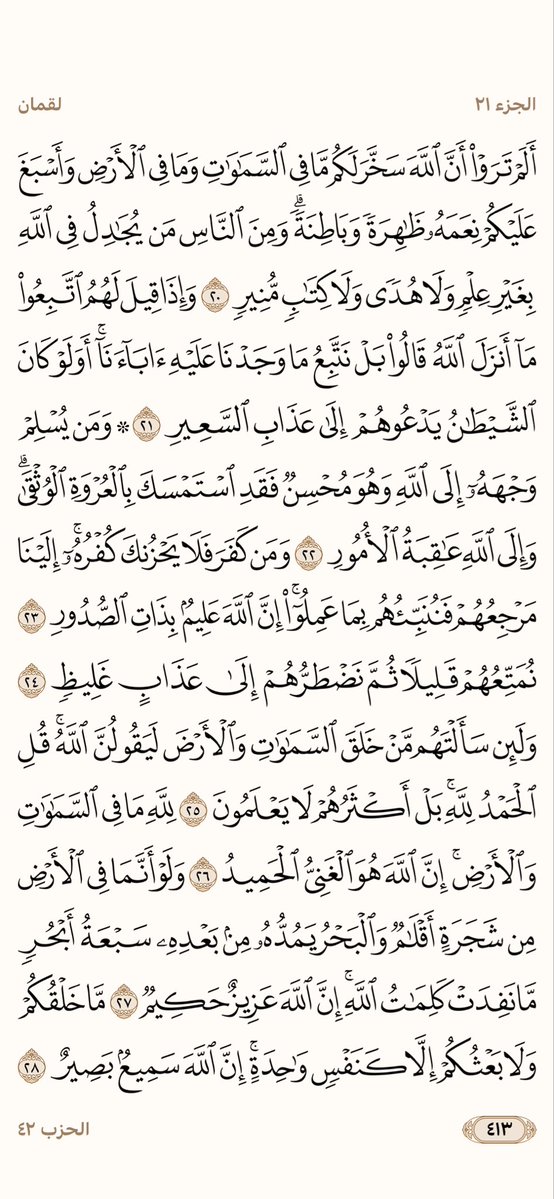 الجزء ٢١
لقمان
أَلَمْ تَرَوْا۟ أَنَّ ٱللَّهَ سَخَّرَ لَكُم مَّا فِى ٱلسَّمَـٰوَٰتِ وَمَا فِى ٱلْأَرْضِ وَأَسْبَغَ
عَلَيْكُمْ نِعَمَهُۥ ظَـٰهِرَةً وَبَاطِنَةً ۗ وَمِنَ ٱلنَّاسِ مَن يُجَـٰدِلُ فِى ٱللَّهِ
بِغَيْرِ عِلْمٍ وَلَا هُدًى وَلَا كِتَـٰبٍ مُّنِيرٍ ٢٠ وَإِذَا قِيلَ لَهُمُ ٱتَّبِعُوا۟
مَآ أَنزَلَ ٱللَّهُ قَالُوا۟ بَلْ نَتَّبِعُ مَا وَجَدْنَا عَلَيْهِ ءَابَآءَنَآ ۚ أَوَلَوْ كَانَ
ٱلشَّيْطَـٰنُ يَدْعُوهُمْ إِلَىٰ عَذَابِ ٱلسَّعِيرِ ٢١ ۞ وَمَن يُسْلِمْ
وَجْهَهُۥٓ إِلَى ٱللَّهِ وَهُوَ مُحْسِنٌ فَقَدِ ٱسْتَمْسَكَ بِٱلْعُرْوَةِ ٱلْوُثْقَىٰ ۗ
وَإِلَى ٱللَّهِ عَـٰقِبَةُ ٱلْأُمُورِ ٢٢ وَمَن كَفَرَ فَلَا يَحْزُنكَ كُفْرُهُۥٓ ۚ إِلَيْنَا
مَرْجِعُهُمْ فَنُنَبِّئُهُم بِمَا عَمِلُوٓا۟ ۚ إِنَّ ٱللَّهَ عَلِيمٌۢ بِذَاتِ ٱلصُّدُورِ ٢٣
نُمَتِّعُهُمْ قَلِيلًا ثُمَّ نَضْطَرُّهُمْ إِلَىٰ عَذَابٍ غَلِيظٍ ٢٤
وَلَئِن سَأَلْتَهُم مَّنْ خَلَقَ ٱلسَّمَـٰوَٰتِ وَٱلْأَرْضَ لَيَقُولُنَّ ٱللَّهُ ۚ قُلِ
ٱلْحَمْدُ لِلَّهِ ۚ بَلْ أَكْثَرُهُمْ لَا يَعْلَمُونَ ٢٥ لِلَّهِ مَا فِى ٱلسَّمَـٰوَٰتِ
وَٱلْأَرْضِ ۚ إِنَّ ٱللَّهَ هُوَ ٱلْغَنِىُّ ٱلْحَمِيدُ ٢٦ وَلَوْ أَنَّمَا فِى ٱلْأَرْضِ
مِن شَجَرَةٍ أَقْلَـٰمٌ وَٱلْبَحْرُ يَمُدُّهُۥ مِنۢ بَعْدِهِۦ سَبْعَةُ أَبْحُرٍ
مَّا نَفِدَتْ كَلِمَـٰتُ ٱللَّهِ ۗ إِنَّ ٱللَّهَ عَزِيزٌ حَكِيمٌ ٢٧ مَّا خَلْقُكُمْ
وَلَا بَعْثُكُمْ إِلَّا كَنَفْسٍ وَٰحِدَةٍ ۗ إِنَّ ٱللَّهَ سَمِيعٌۢ بَصِيرٌ ٢٨
٤١٣
الحزب ٤٢